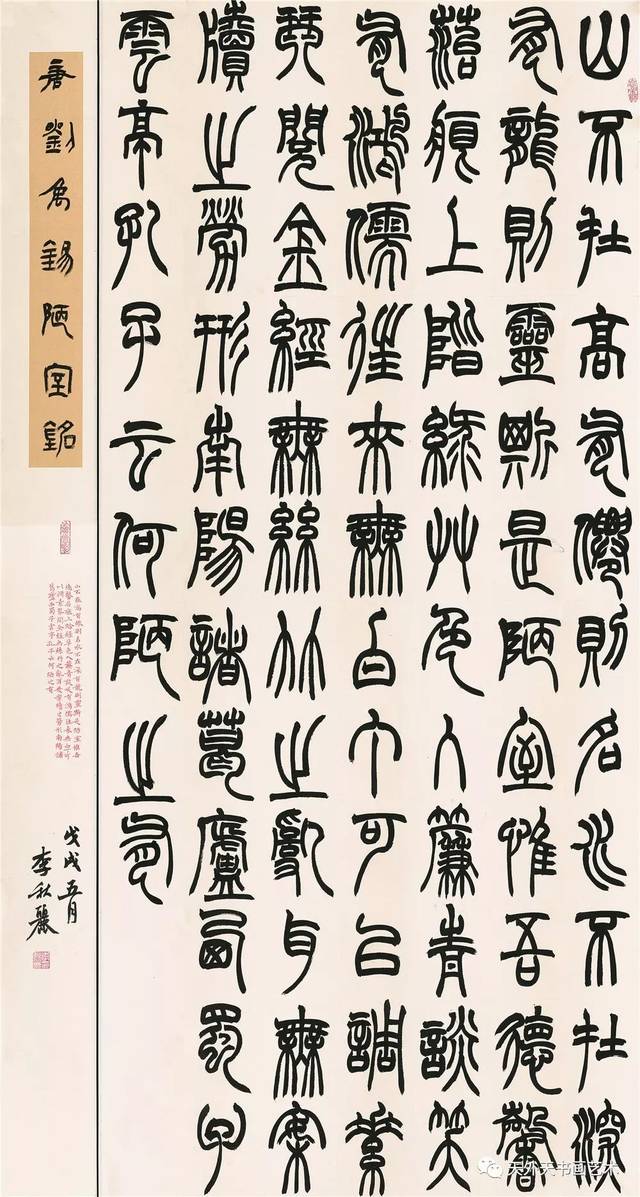 山不在高有僊則名水不在深
有龍則靈斯是陋室惟吾德馨
菭痕上階綠艸色入簾青談笑
有鴻儒往來無白丁可以調素
琴閱金經無絲竹之亂耳無案
牘之勞形南陽諸葛廬西蜀子
雲亭孔子云何陋之有
唐劉禹錫陋室銘
戊戌五月
李秋麗
天外天书画艺术